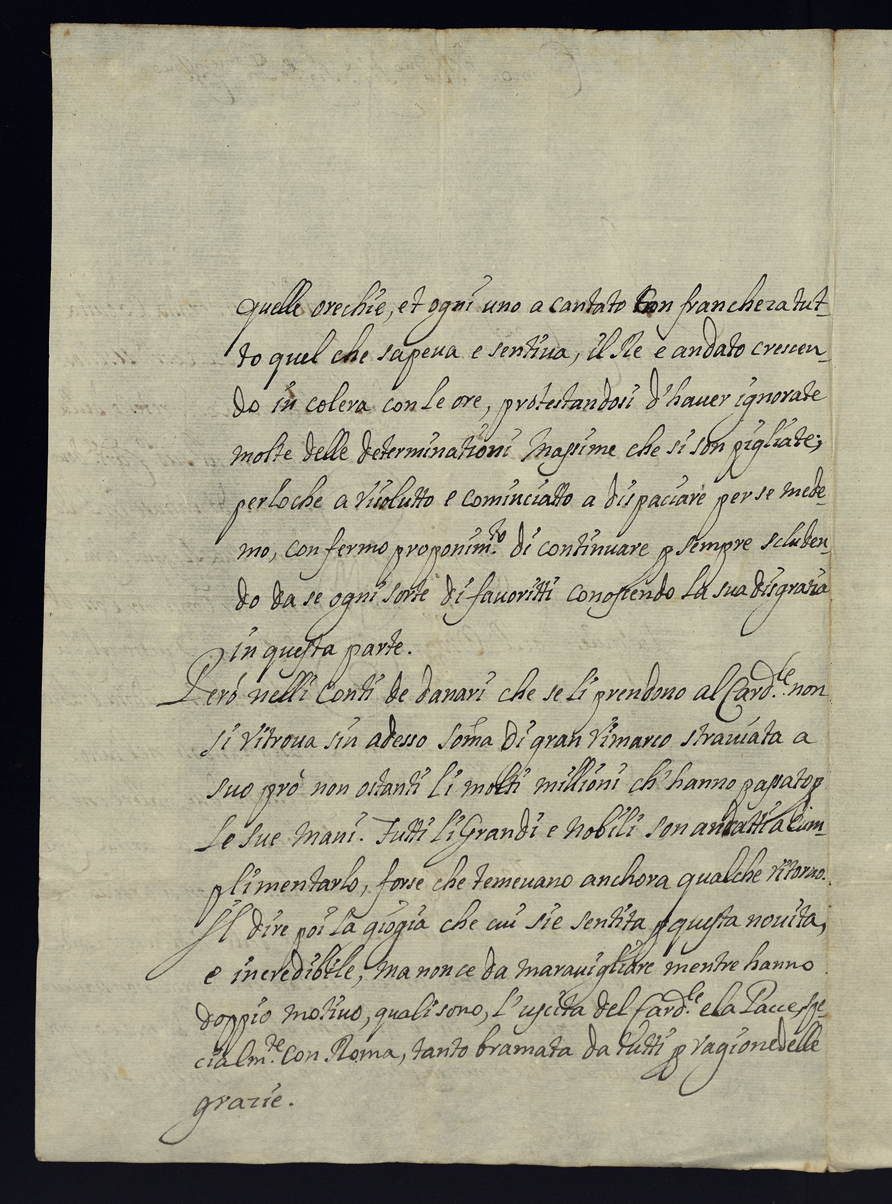 quelle orechie, et ogni uno a cantato con francheza tut-
to quel che sapeua e sentiua, il Re e andato crescen-
do in colera con le ore, protestandosi d'hauer ignorate
molte delle determinationi Massime che si son pigliate;
perloche a risolutto e cominciatto a dispaciare per se mede-
mo, con fermo proponim.to di continuare p sempre scluden-
do da se ogni sorte di fauoritti conoscendo la sua disgratia
in questa parte.
Peró nelli Conti de danari che se li prendono al Card.le non
si ritroua sin adesso soma di gran rimarco strauiata a
suo pró non ostanti li molti millioni ch'hanno passato p
le sue mani. Tutti li Grandi e Nobili son andatti a Com-
plimentarlo, forse che temeuano anchora qualche ritorno.
Il dire poi la gioia che cui si e sentita p questa nouita,
e incredibile, ma non ce da marauigliare mentre hanno
doppio motiuo, quali sono, l'uscita del Card.le e la Pace spe-
cialm.te con Roma, tanto bramata da tutti p ragione delle
grazie.